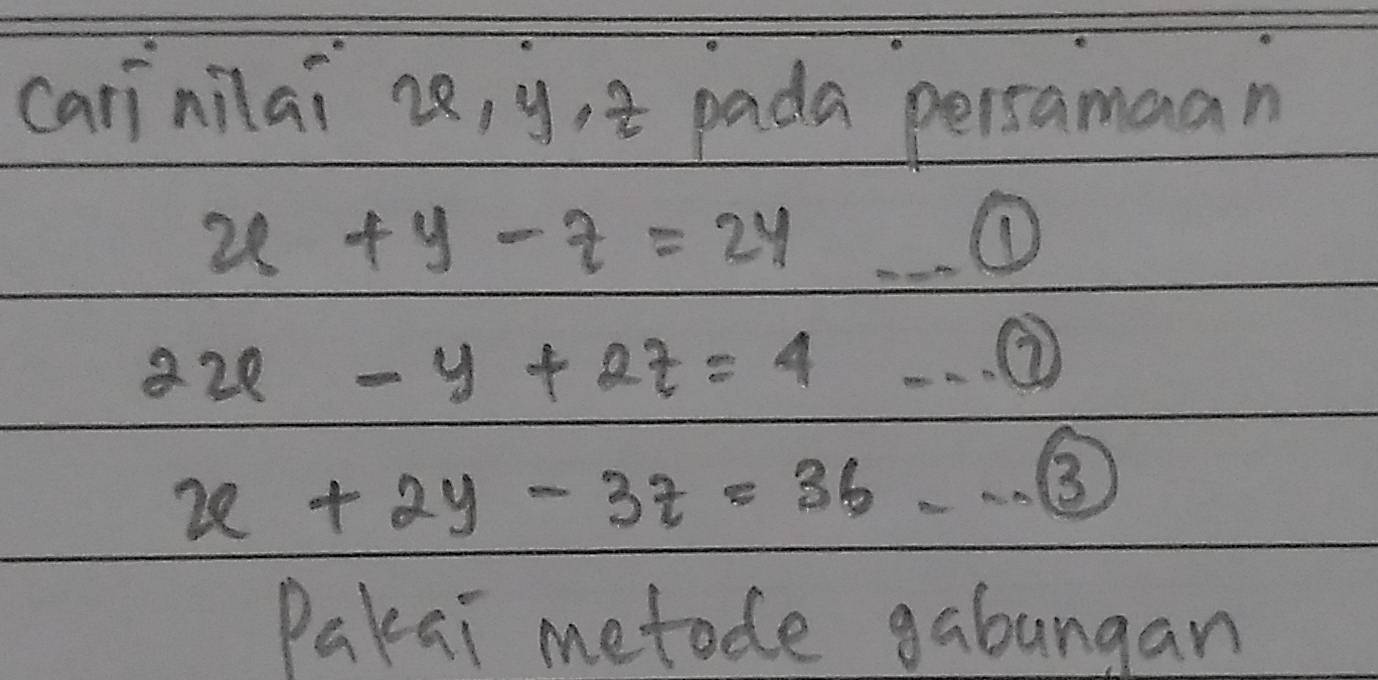 Cari nilai x, y, z pada persamaan
x + y - z = 24 ... ①
2x - y + 2z = 4 ... ②
x + 2y - 3z = 36 ... ③
Pakai metode gabungan